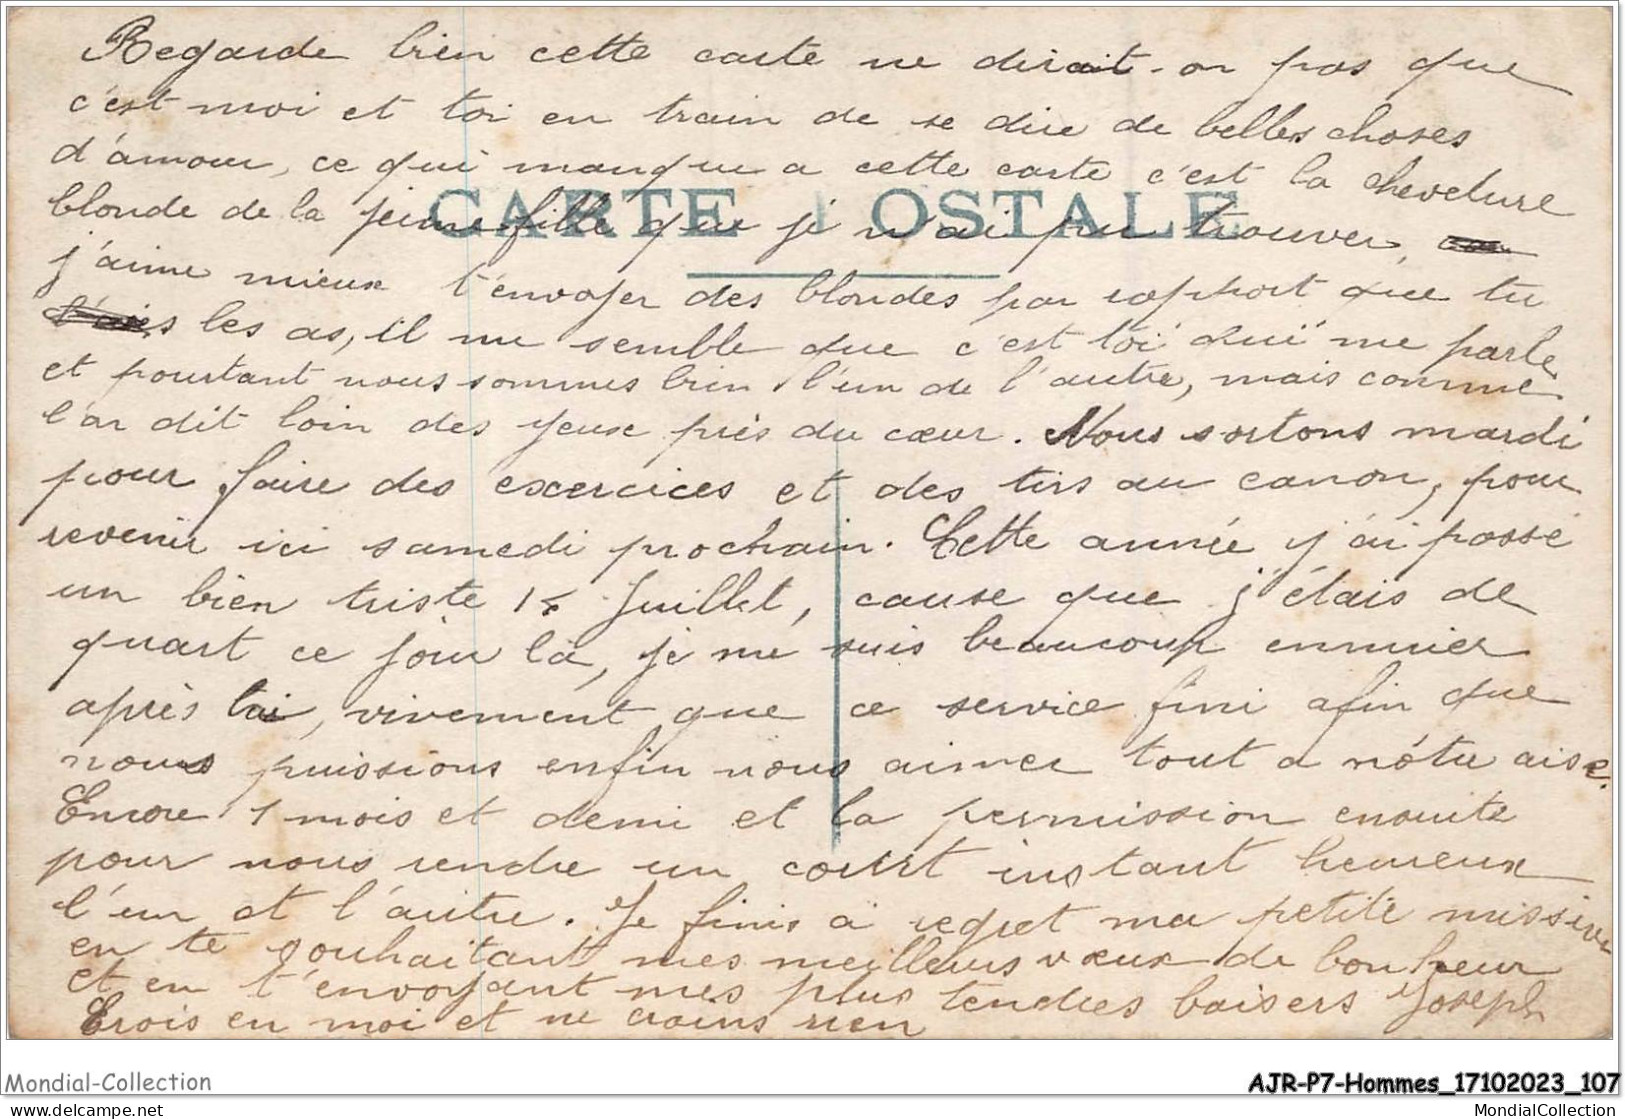 Regarde bien cette carte ne dirait-on pas que
c'est moi et toi en train de se dire de belles choses
d'amour, ce qui manque a cette carte c'est la chevelure
CARTE POSTALE
blonde de la jeune fille que je n'ai pu trouver,
j'aime mieux t'envoyer des blondes par rapport que tu
les as, il me semble que c'est toi qui me parle
et pourtant nous sommes loin l'un de l'autre, mais comme
l'on dit loin des yeux près du cœur. Nous sortons mardi
pour faire des exercices et des tirs au canon, pour
revenir ici samedi prochain. Cette année j'ai passé
un bien triste 14 Juillet, cause que j'étais de
quart ce jour là, je me suis beaucoup ennuier
après toi, vivement que ce service fini afin que
nous puissions enfin nous aimer tout a nôtre aise.
Encore 1 mois et demi et la permission ensuite
pour nous rendre un court instant heureux
l'un et l'autre. Je finis à regret ma petite missive
en te souhaitant mes meilleurs vœux de bonheur
et en t'envoyant mes plus tendres baisers Joseph
Crois en moi et ne crains rien
Mondial-Collection
AJR-P7-Hommes_17102023_107
www.delcampe.net
MondialCollection